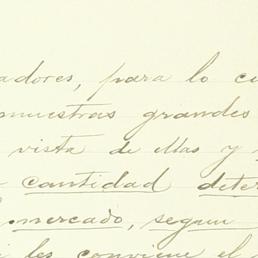 adores, para lo cu
muestras grandes
vista de ellas y
cantidad deter
mercado, segun
les conviene el